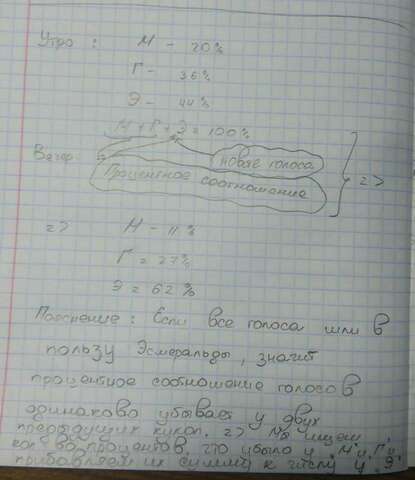 Утро : М - 20%
Г - 36%
Э - 44%
М + Г + Э = 100%
новые голоса
Вечер
Процентное соотношение
=>
=> М - 11%
Г = 27%
Э = 62%
Пояснение : Если все голоса шли в
пользу Эсмеральды, значит
процентное соотношение голосов
одинаково убывает у двух
предыдущих кукол. => Мы ищем
кол-во процентов, что убыло у "М" и "Г" и
прибавляем их сумму к числу у "Э"